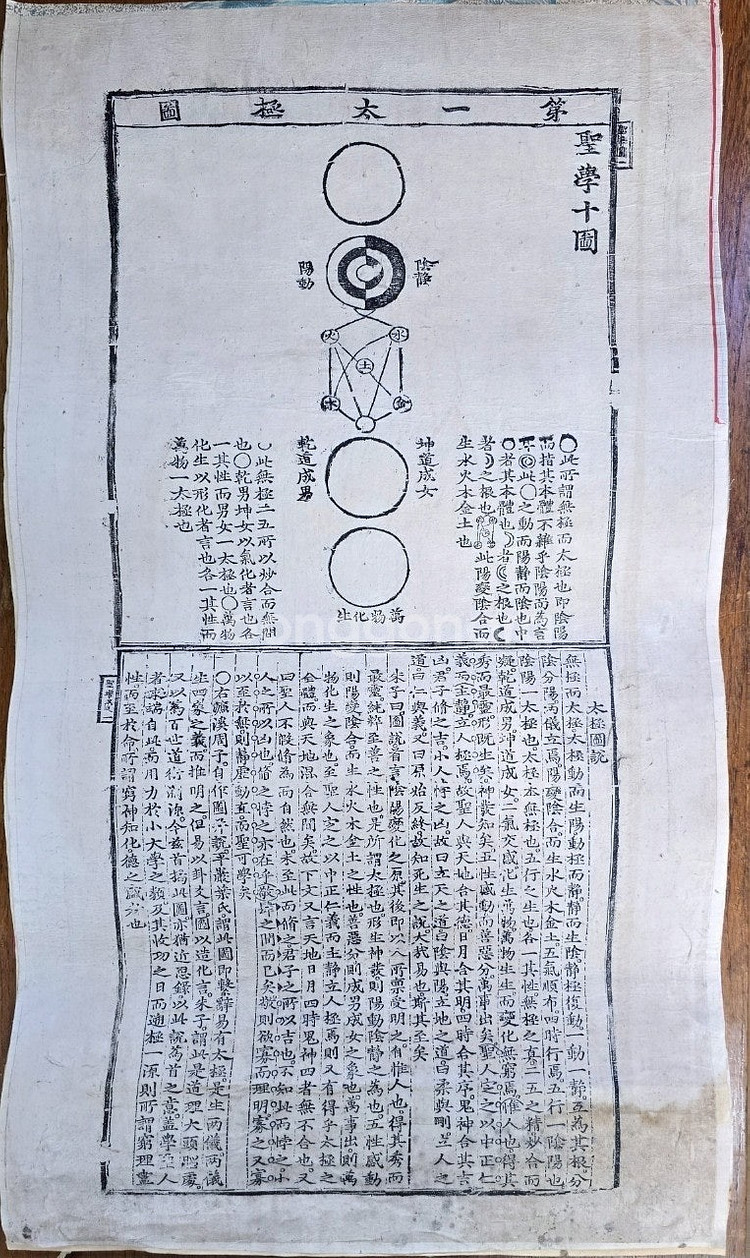 第一太極圖
聖學十圖
陰靜
陽動
火
水
土
木
金
坤道成女
乾道成男
萬物化生
○此所謂無極而太極也即陰陽
而指其本體不雜乎陰陽而為言
耳◎此○之動而陽靜而陰也中
○者其本體也☽者☾之根也☾
者☽之根也 此陽變陰合而
生水火木金土也
此無極二五所以妙合而無間
也○乾男坤女以氣化者言也各
一其性而男女一太極也○萬物
化生以形化者言也各一其性而
萬物一太極也
太極圖說
無極而太極太極動而生陽動極而靜靜而生陰靜極復動一動一靜互為其根分
陰分陽兩儀立焉陽變陰合而生水火木金土五氣順布四時行焉五行一陰陽也
陰陽一太極也太極本無極也五行之生也各一其性無極之真二五之精妙合而
凝乾道成男坤道成女二氣交感化生萬物萬物生生而變化無窮焉惟人也得其
秀而最靈形既生矣神發知矣五性感動而善惡分萬事出矣聖人定之以中正仁
義而主靜立人極焉故聖人與天地合其德日月合其明四時合其序鬼神合其吉
凶君子脩之吉小人悖之凶故曰立天之道曰陰與陽立地之道曰柔與剛立人之
道曰仁與義又曰原始反終故知死生之說大哉易也斯其至矣
朱子曰圖說首言陰陽變化之原其後即以人所稟受明之自惟人也得其秀而
最靈純粹至善之性也是所謂太極也形生神發則陽動陰靜之為也五性感動
則陽變陰合而生水火木金土之性也善惡分則成男成女之象也萬事出則萬
物化生之象也至聖人定之以中正仁義而主靜立人極焉則又有得乎太極之
全體而與天地混合無間矣故下文又言天地日月四時鬼神四者無不合也又
曰聖人不假脩為而自然也未至此而脩之君子之所以吉也不知此而悖之小
人之所以凶也脩之悖之亦在乎敬肆之間而已矣敬則欲寡而理明寡之又寡
以至於無則靜虛動直而聖可學矣
○右濂溪周子自作圖并說平巖葉氏謂此圖即繫辭易有太極是生兩儀兩儀
生四象之義而推明之但易以卦爻言圖以造化言朱子謂此是道理大頭腦處
又以為百世道術淵源今玆首揭此圖亦猶近思錄以此說為首之意蓋學聖人
者求端自此而用力於小大學之敎及其收功之日而遡極一源則所謂窮理盡
性而至於命所謂窮神知化德之盛者也